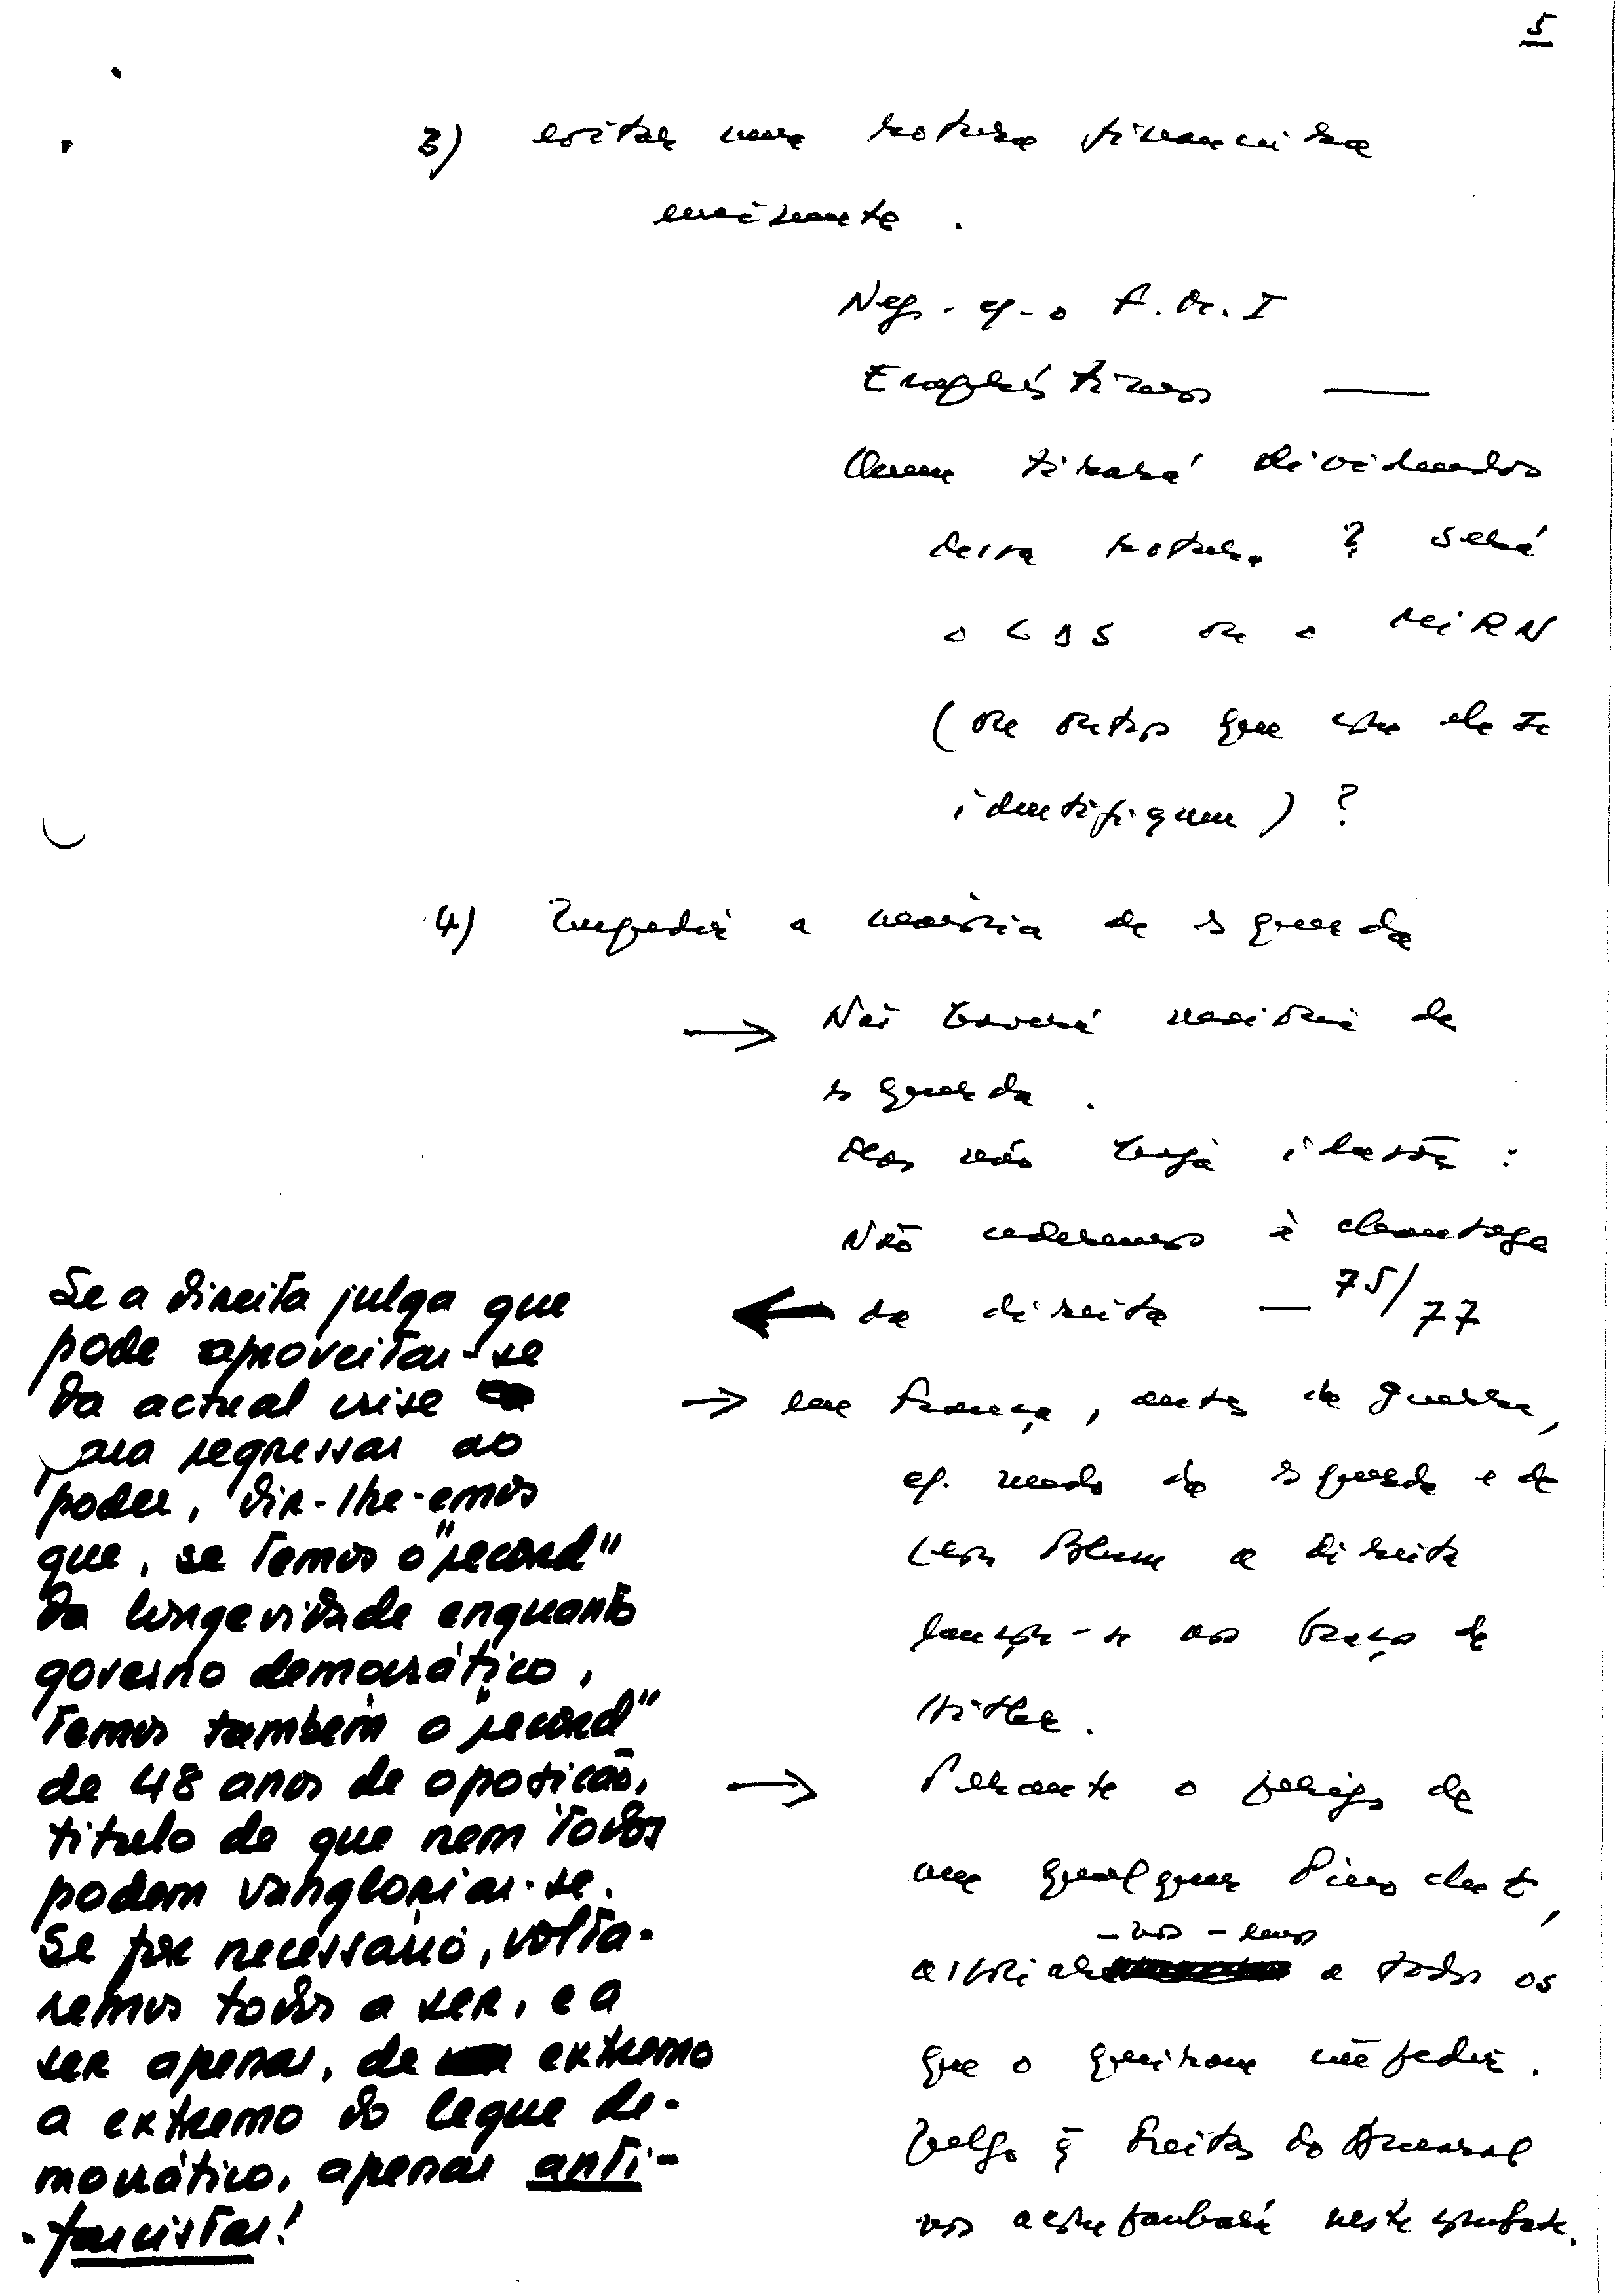 5
3) evitar uma rotura financeira
iminente.
Neg. c/. o F.M.I
Empréstimos —
Quem tirará dividendos
dessa rotura? Será
o CDS ou o MIRN
(ou outros que com ele se
identifiquem)?
4) Impedir a maioria de esquerda
→ Não haverá maioria de
esquerda.
Mas não haja ilusões:
Não cederemos à chantage
← da direita — 75/77
→ em França, antes da guerra,
c/. medo da esquerda e de
Léon Blum a direita
lançou-se nos braços de
Hitler.
→ Perante o perigo de
um qualquer Pinochet,
-nos-emos
associar a todos os
que o queiram impedir.
Julgo q Freitas do Amaral
nos acompanhará neste combate.
Se a direita julga que
pode aproveitar-se
da actual crise
para regressar ao
poder, dir-lhe-emos
que, se temos o "record"
da longevidade enquanto
governo democrático,
temos também o "record"
de 48 anos de oposição,
titulo de que nem todos
podem vangloriar-se.
Se for necessário, volta-
remos todos a ser, e a
ser apenas, de extremo
a extremo do leque de-
mocrático, apenas anti-
-fascistas!